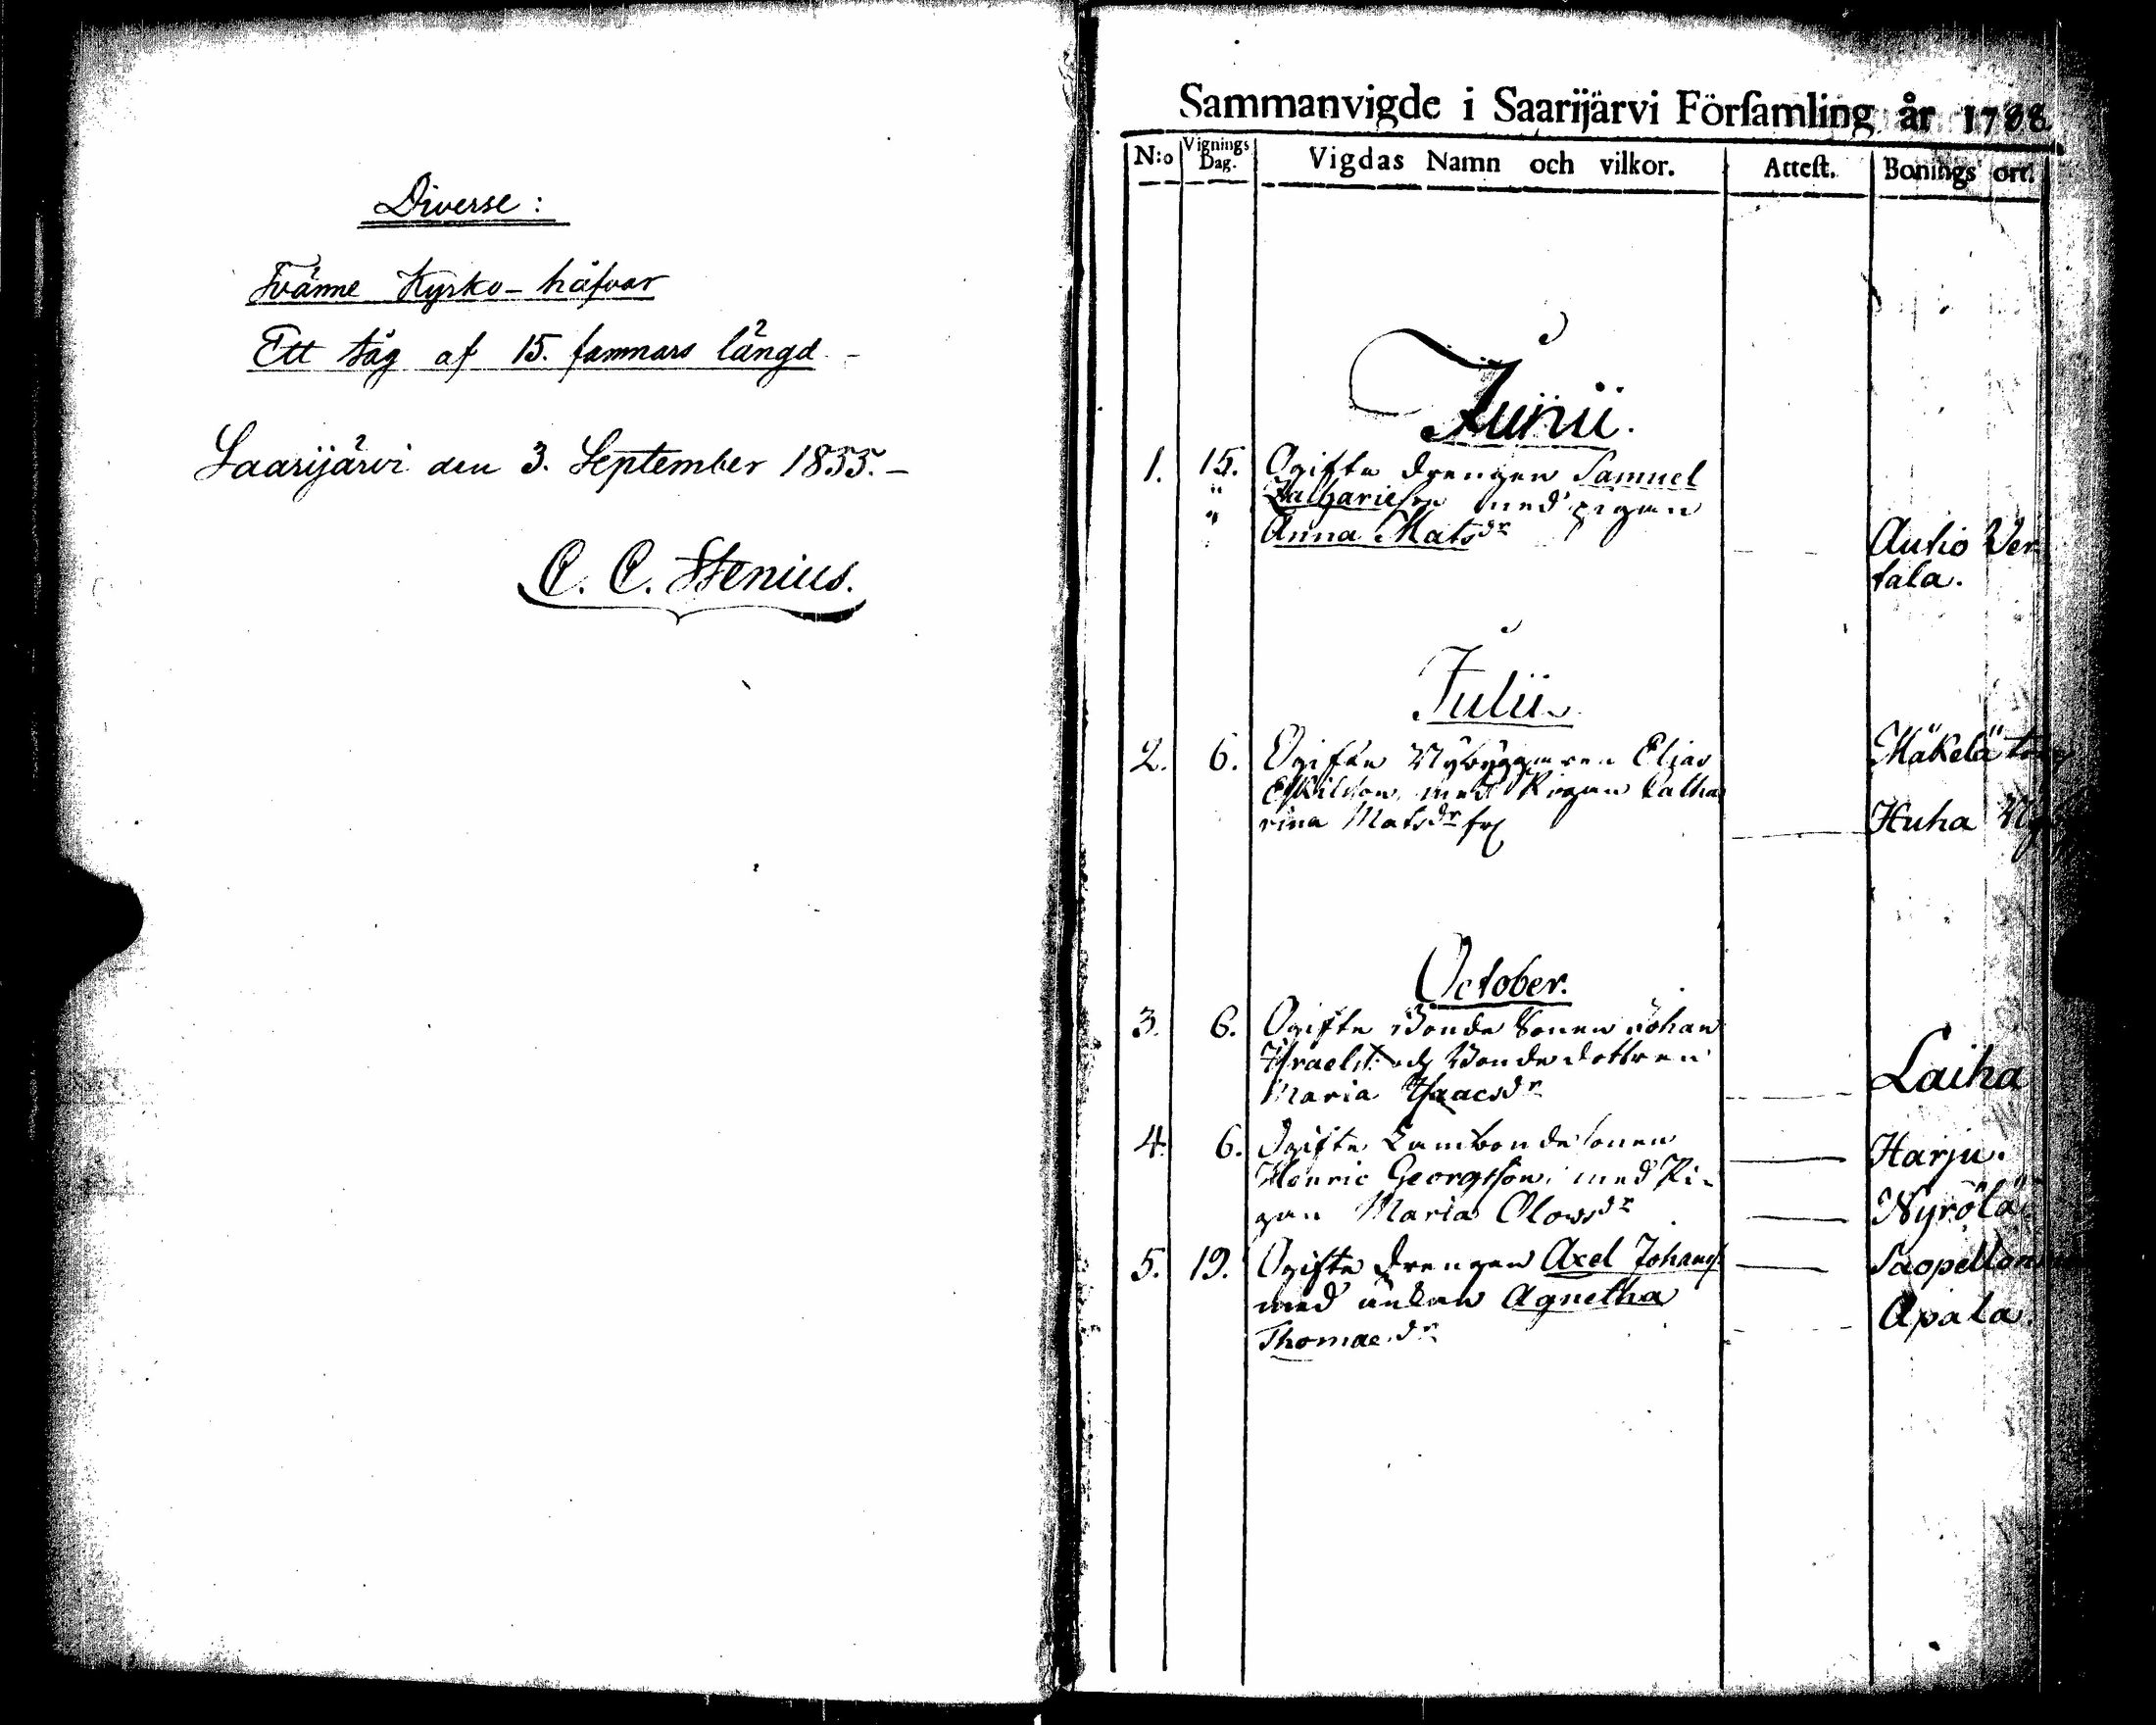 Diverse:
Tvänne Kyrko-håfvar
Ett tåg af 15. famnars längd. -
Saarijärvi den 3. September 1855. -
C. C. Stenius.
Sammanvigde i Saarijärvi Förſamling år 1788.
N:o Vignings Dag. Vigdas Namn och vilkor. Atteſt. Bonings ort.
Junii.
1. 15. Ogifte Drengen Samuel
" Zachariesson med pigan
" Anna Matsdr Autio
tala.
Julii.
2. 6. Ogifte Nybyggaren Elias Mäkelä
Eskilsson med Pigan Catha
rina Matsdr Huha
October.
3. 6. Ogifte Bonde Sonen Johan
Israelss: och Bonde dottren
Maria Isaacsdr Laiha
4. 6. Ogifte Bonde sonen Harju.
Henric Georgsson, med Pi-
gan Maria Olowsdr Nyrölä
5. 19. Ogifte Drengen Axel Johanss.
med änkan Agnetha Apala.
Thomaedr